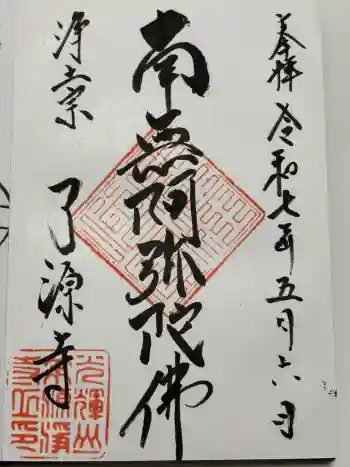 奉拝 令和七年五月六日
南無阿弥陀佛
浄土宗 了源寺